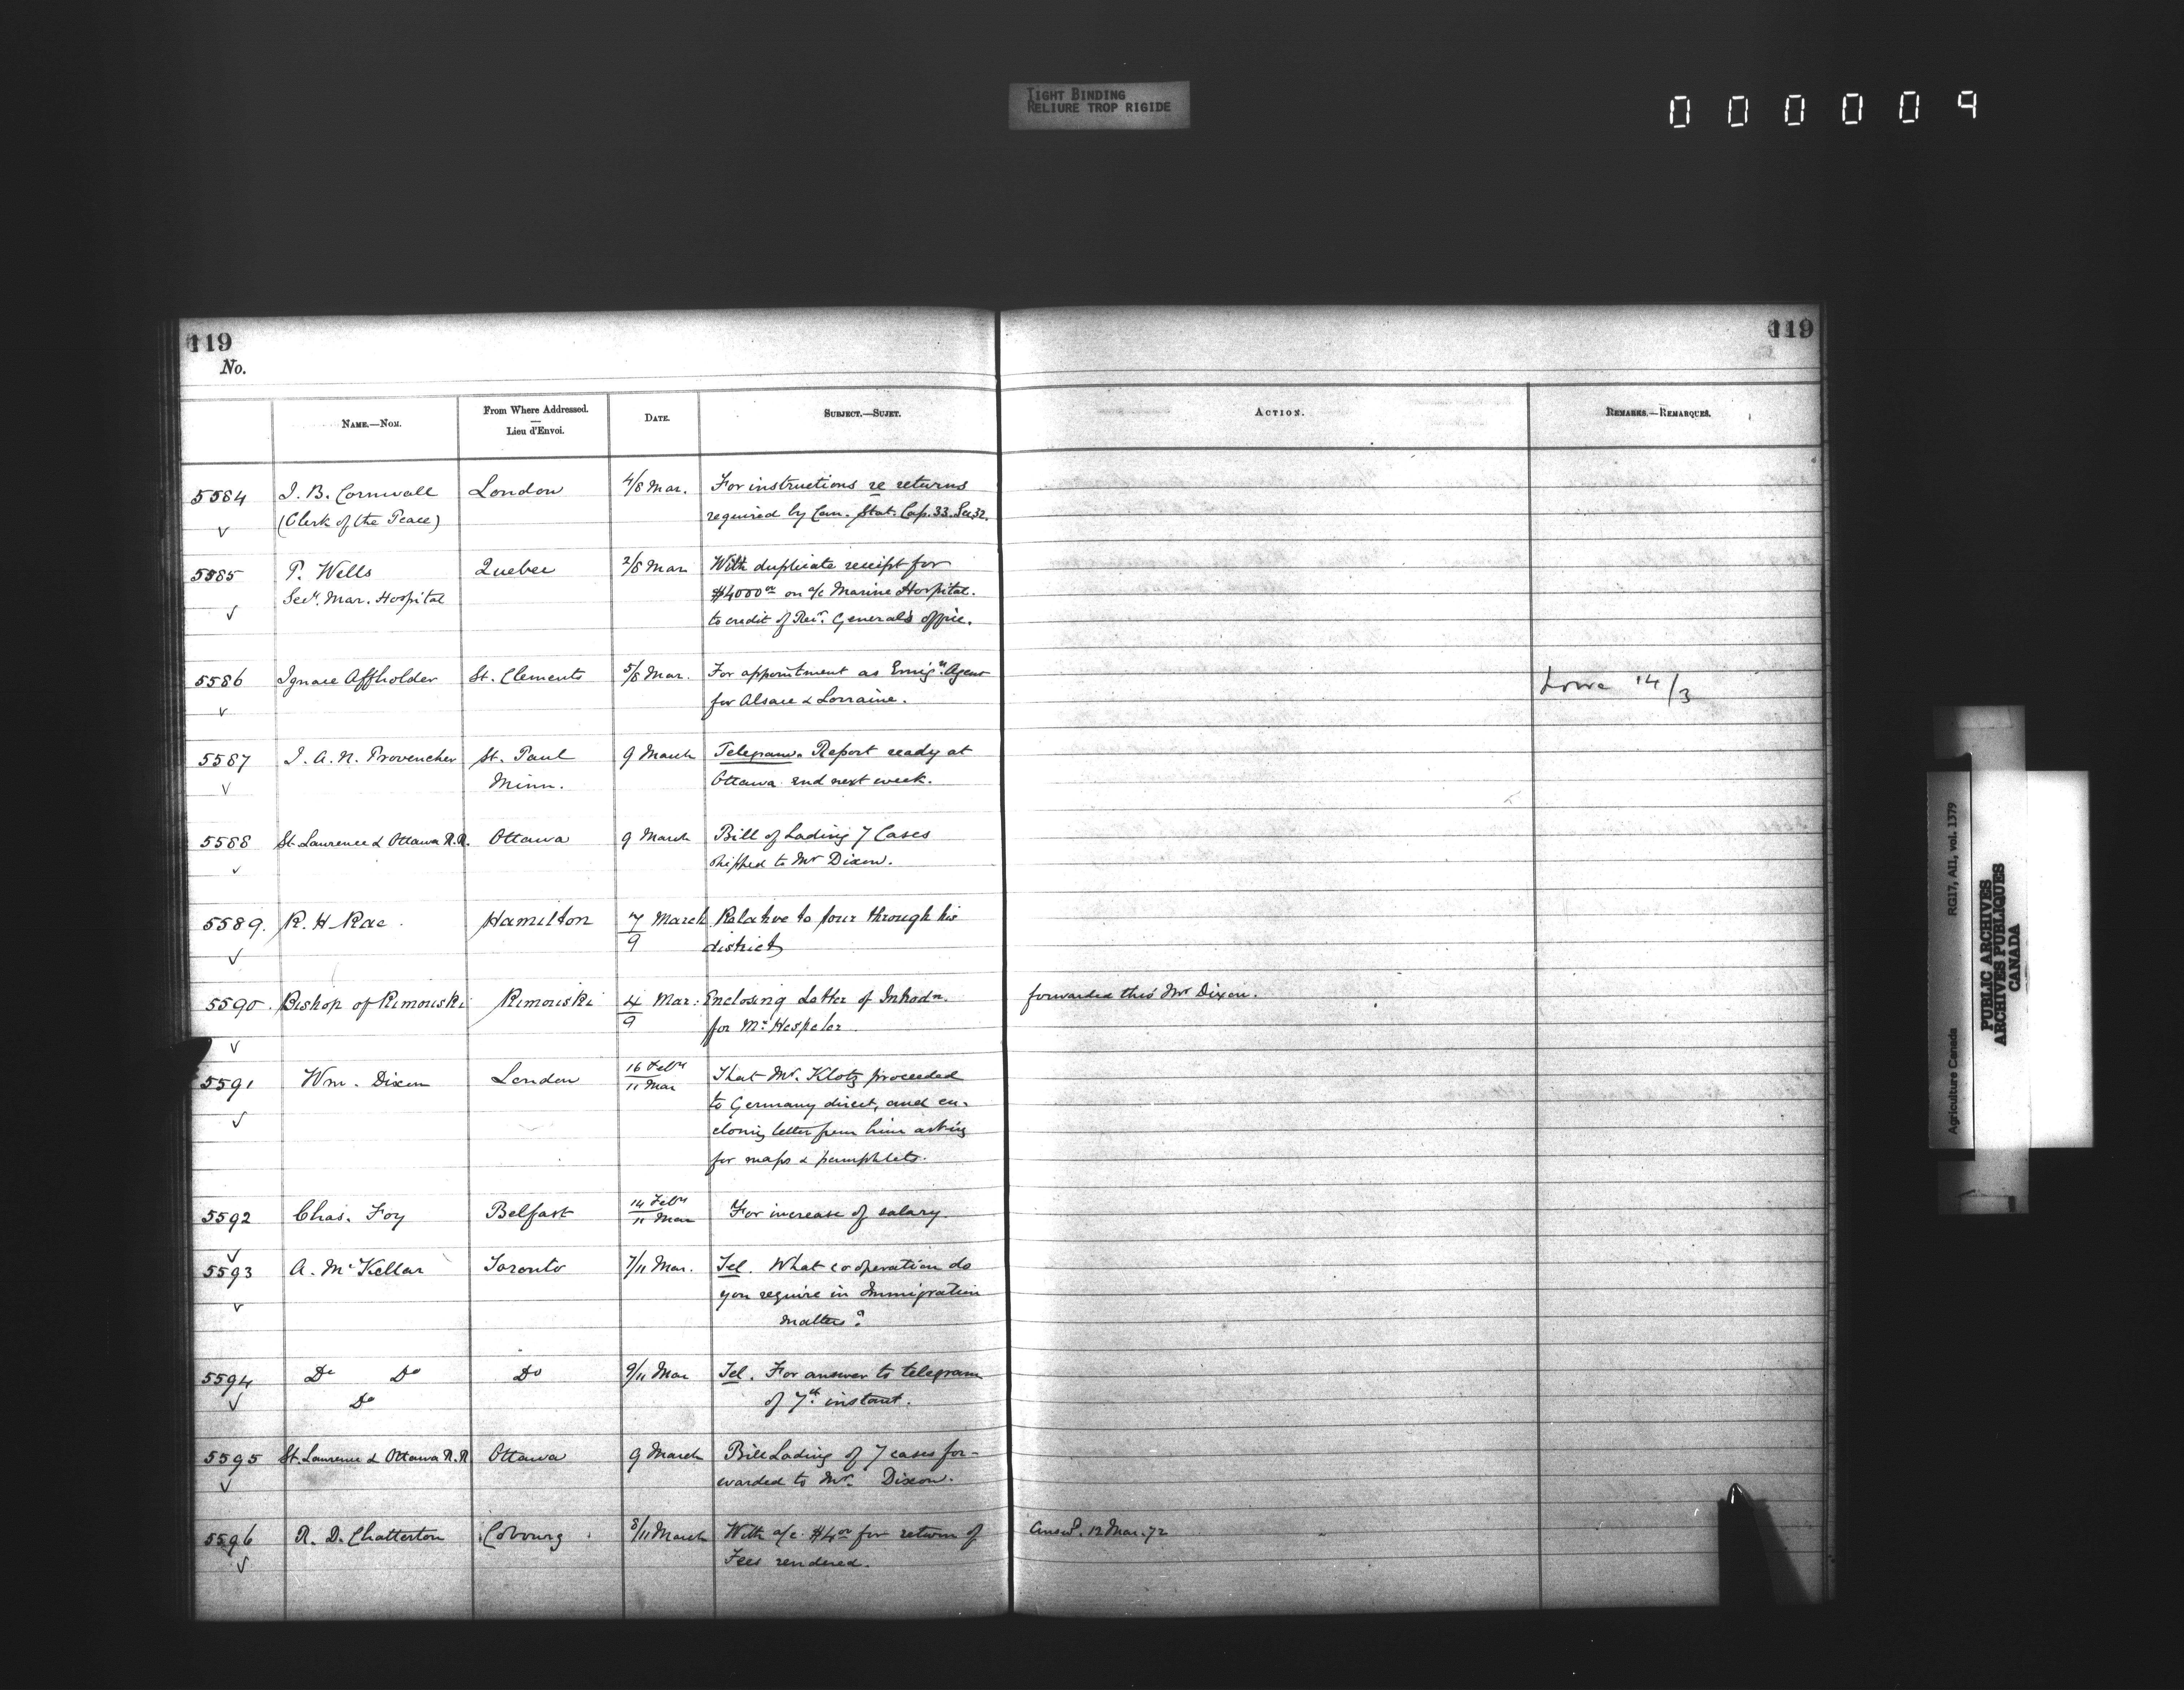 TIGHT BINDING
RELIURE TROP RIGIDE
000009
119
119
No.
NAME.—NOM.
From Where Addressed.
Lieu d'Envoi.
DATE.
SUBJECT.—SUJET.
ACTION.
REMARKS.—REMARQUES.
5584 J. B. Cornwall London 4/8 Mar. For instructions re returns
(Clerk of the Peace) required by Can. Stat. Cap. 33. Sec 32.
5585 P. Wells Quebec 2/8 Mar With duplicate receipt for
Secy. Mar. Hospital $4000 00 on a/c Marine Hospital.
to credit of Recr. General's office.
5586 Ignace Affholder St. Clements 5/8 Mar. For appointment as Emign. Agent
for Alsace & Lorraine. Lowe 14/3
5587 J. A. N. Provencher St. Paul 9 March Telegram. Report ready at
Minn. Ottawa end next week.
5588 St. Lawrence & Ottawa R.R. Ottawa 9 March Bill of Lading 7 Cases
shipped to Mr Dixon.
5589. R. H Rae. Hamilton 7/9 March Relative to tour through his
district
5590. Bishop of Rimouski Rimouski 4/9 Mar: Enclosing Letter of Introdn. forwarded thro' Mr Dixon.
for Mr. Hespeler
5591 Wm. Dixon London 16 Feby/11 Mar That Mr. Klotz proceeded
to Germany direct, and en-
closing letter from him asking
for maps & pamphlets.
5592 Chas. Foy Belfast 14 Feby/11 Mar For increase of salary.
5593 A. McKellar Toronto 7/11 Mar. Tel. What cooperation do
you require in Immigration
matters?
5594 Do Do Do 9/11 Mar Tel. For answer to telegram
Do of 7th. instant.
5595 St. Lawrence & Ottawa R.R Ottawa 9 March Bill Lading of 7 cases for-
warded to Mr. Dixon.
5596 R. D. Chatterton Cobourg. 8/11 March With a/c $4 00 for return of Answd. 12 Mar. 72
Fees rendered.
Agriculture Canada RG17, AI1, vol. 1379
PUBLIC ARCHIVES
ARCHIVES PUBLIQUES
CANADA